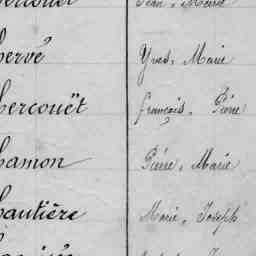 Jean, Marie
hervé Yves, Marie
hercouët François, Pierre
hamon Pierre, Marie
hautière Marie, Joseph